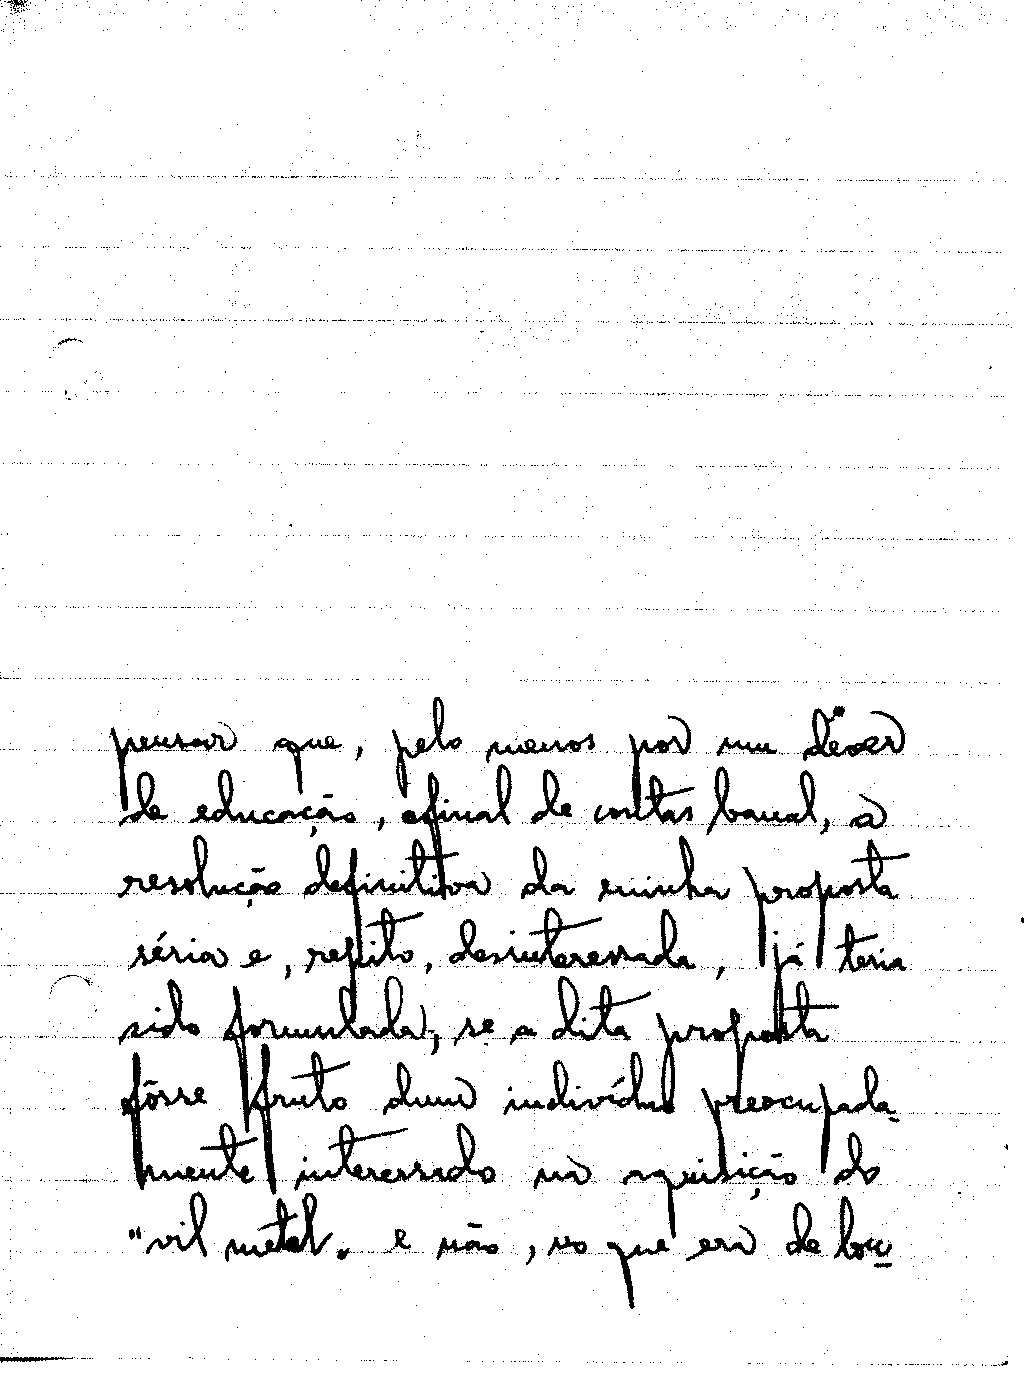 pensar que, pelo menos por um dever
de educação, afinal de contas banal, a
resolução definitiva da minha proposta
séria e, repito, desinteressada, já teria
sido formulada, se a dita proposta
fôsse fruto dum indivíduo preocupada-
mente interessado na aquisição do
"vil metal. e não, no que era de lou